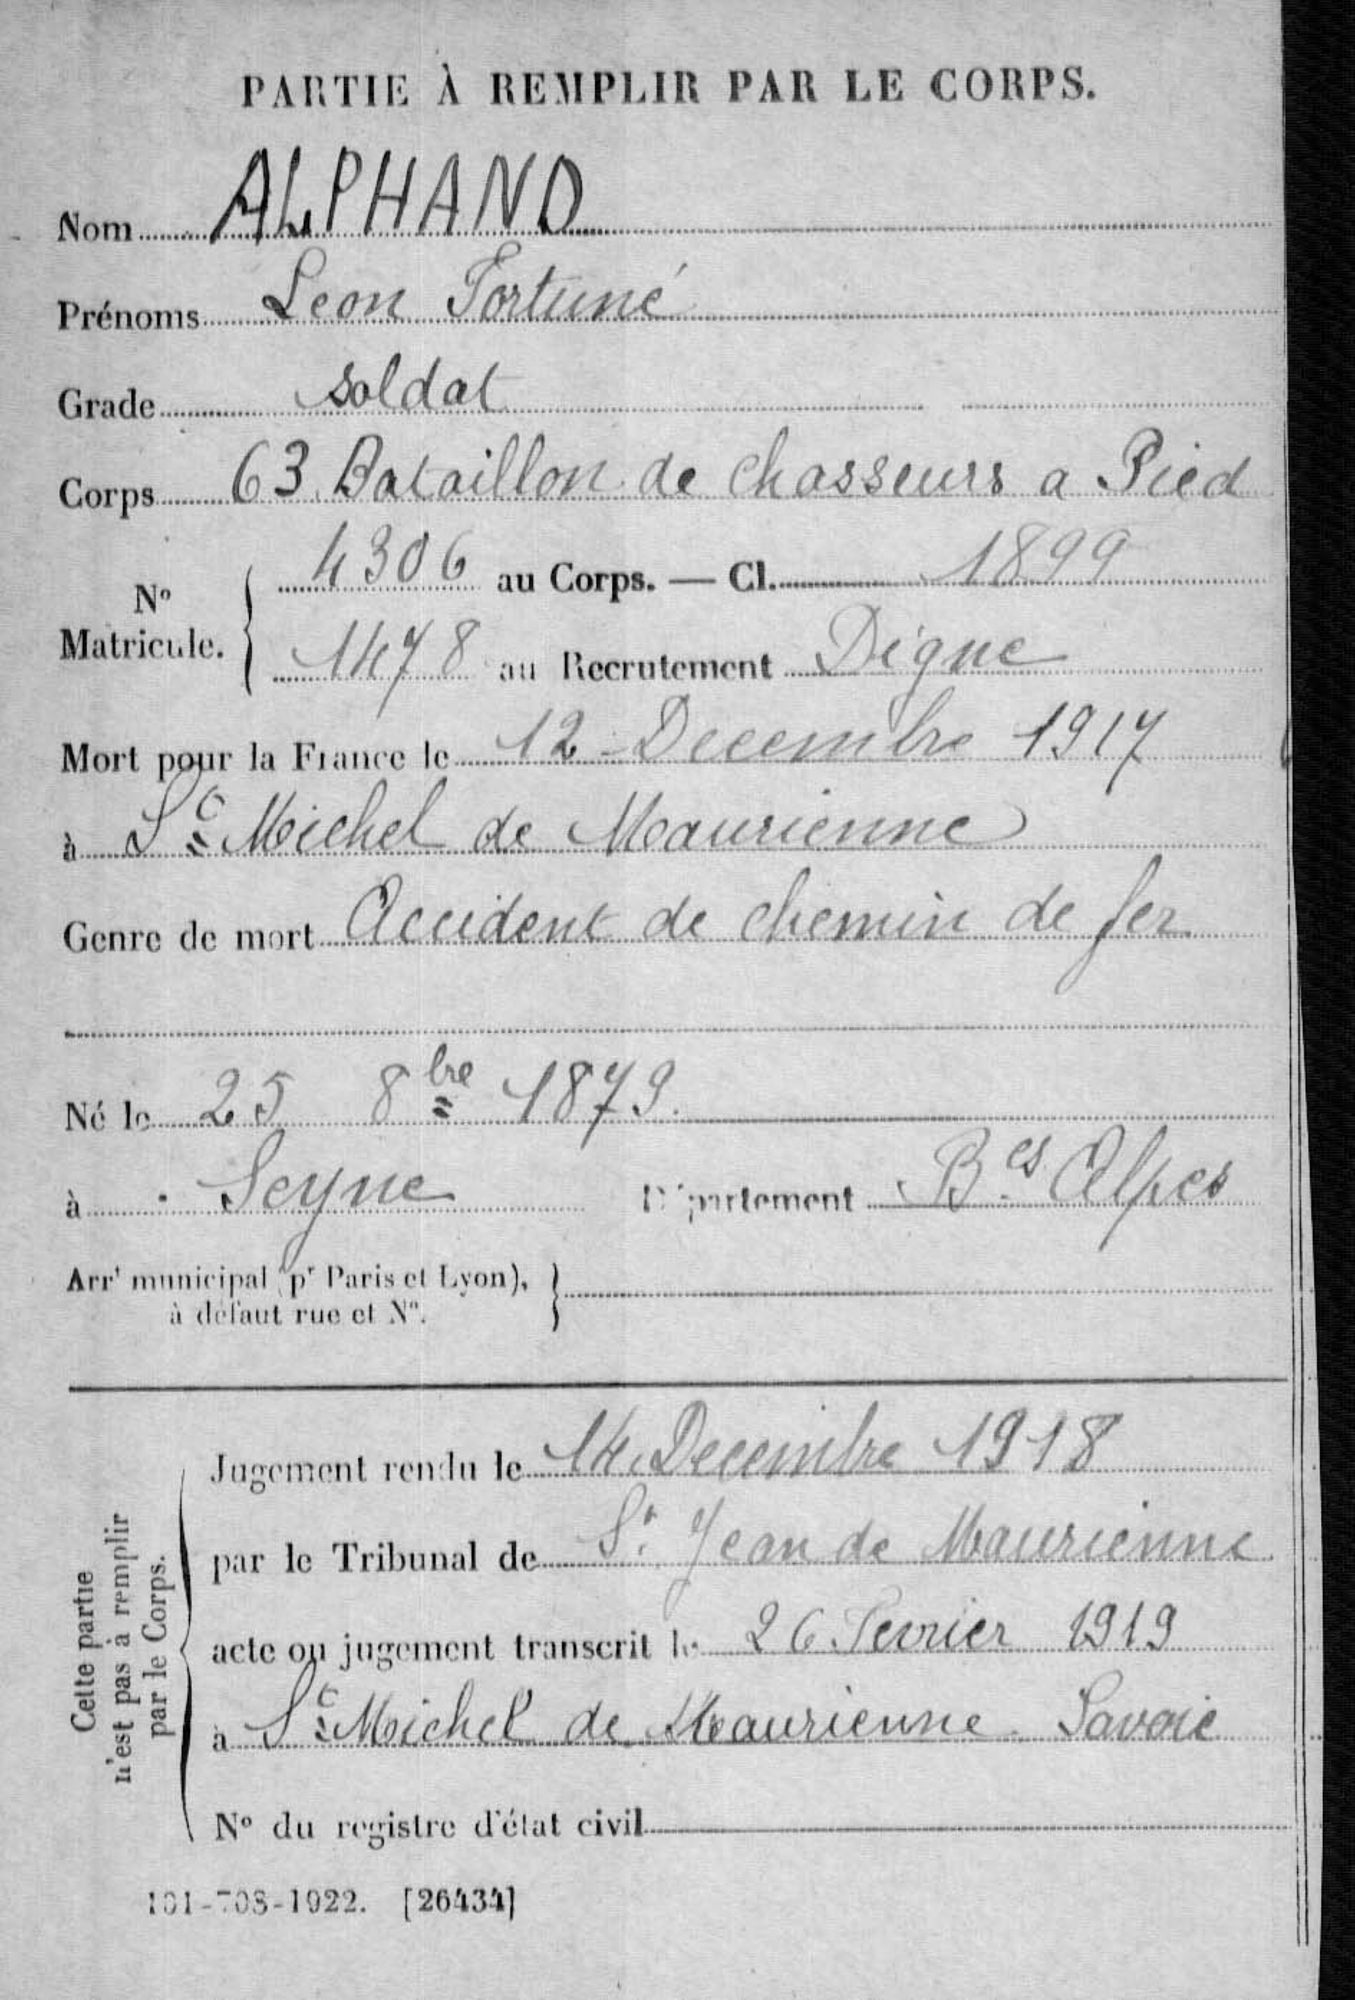 PARTIE À REMPLIR PAR LE CORPS.
Nom ALPHAND
Prénoms Leon Fortuné
Grade soldat
Corps 63 Bataillon de chasseurs a Pied
N° Matricule. { 4306 au Corps. — Cl. 1899
1478 au Recrutement Digne
Mort pour la France le 12 Decembre 1917
à St Michel de Maurienne
Genre de mort Accident de chemin de fer
Né le 25 8bre 1879.
à Seyne Département Bes Alpes
Arrt municipal (pr Paris et Lyon), }
à défaut rue et N°.
Cette partie
n'est pas à remplir
par le Corps.
Jugement rendu le 14 Decembre 1918
par le Tribunal de St Jean de Maurienne
acte ou jugement transcrit le 26 Fevrier 1919
à St Michel de Maurienne Savoie
N° du registre d'état civil
101-708-1922. [26434]